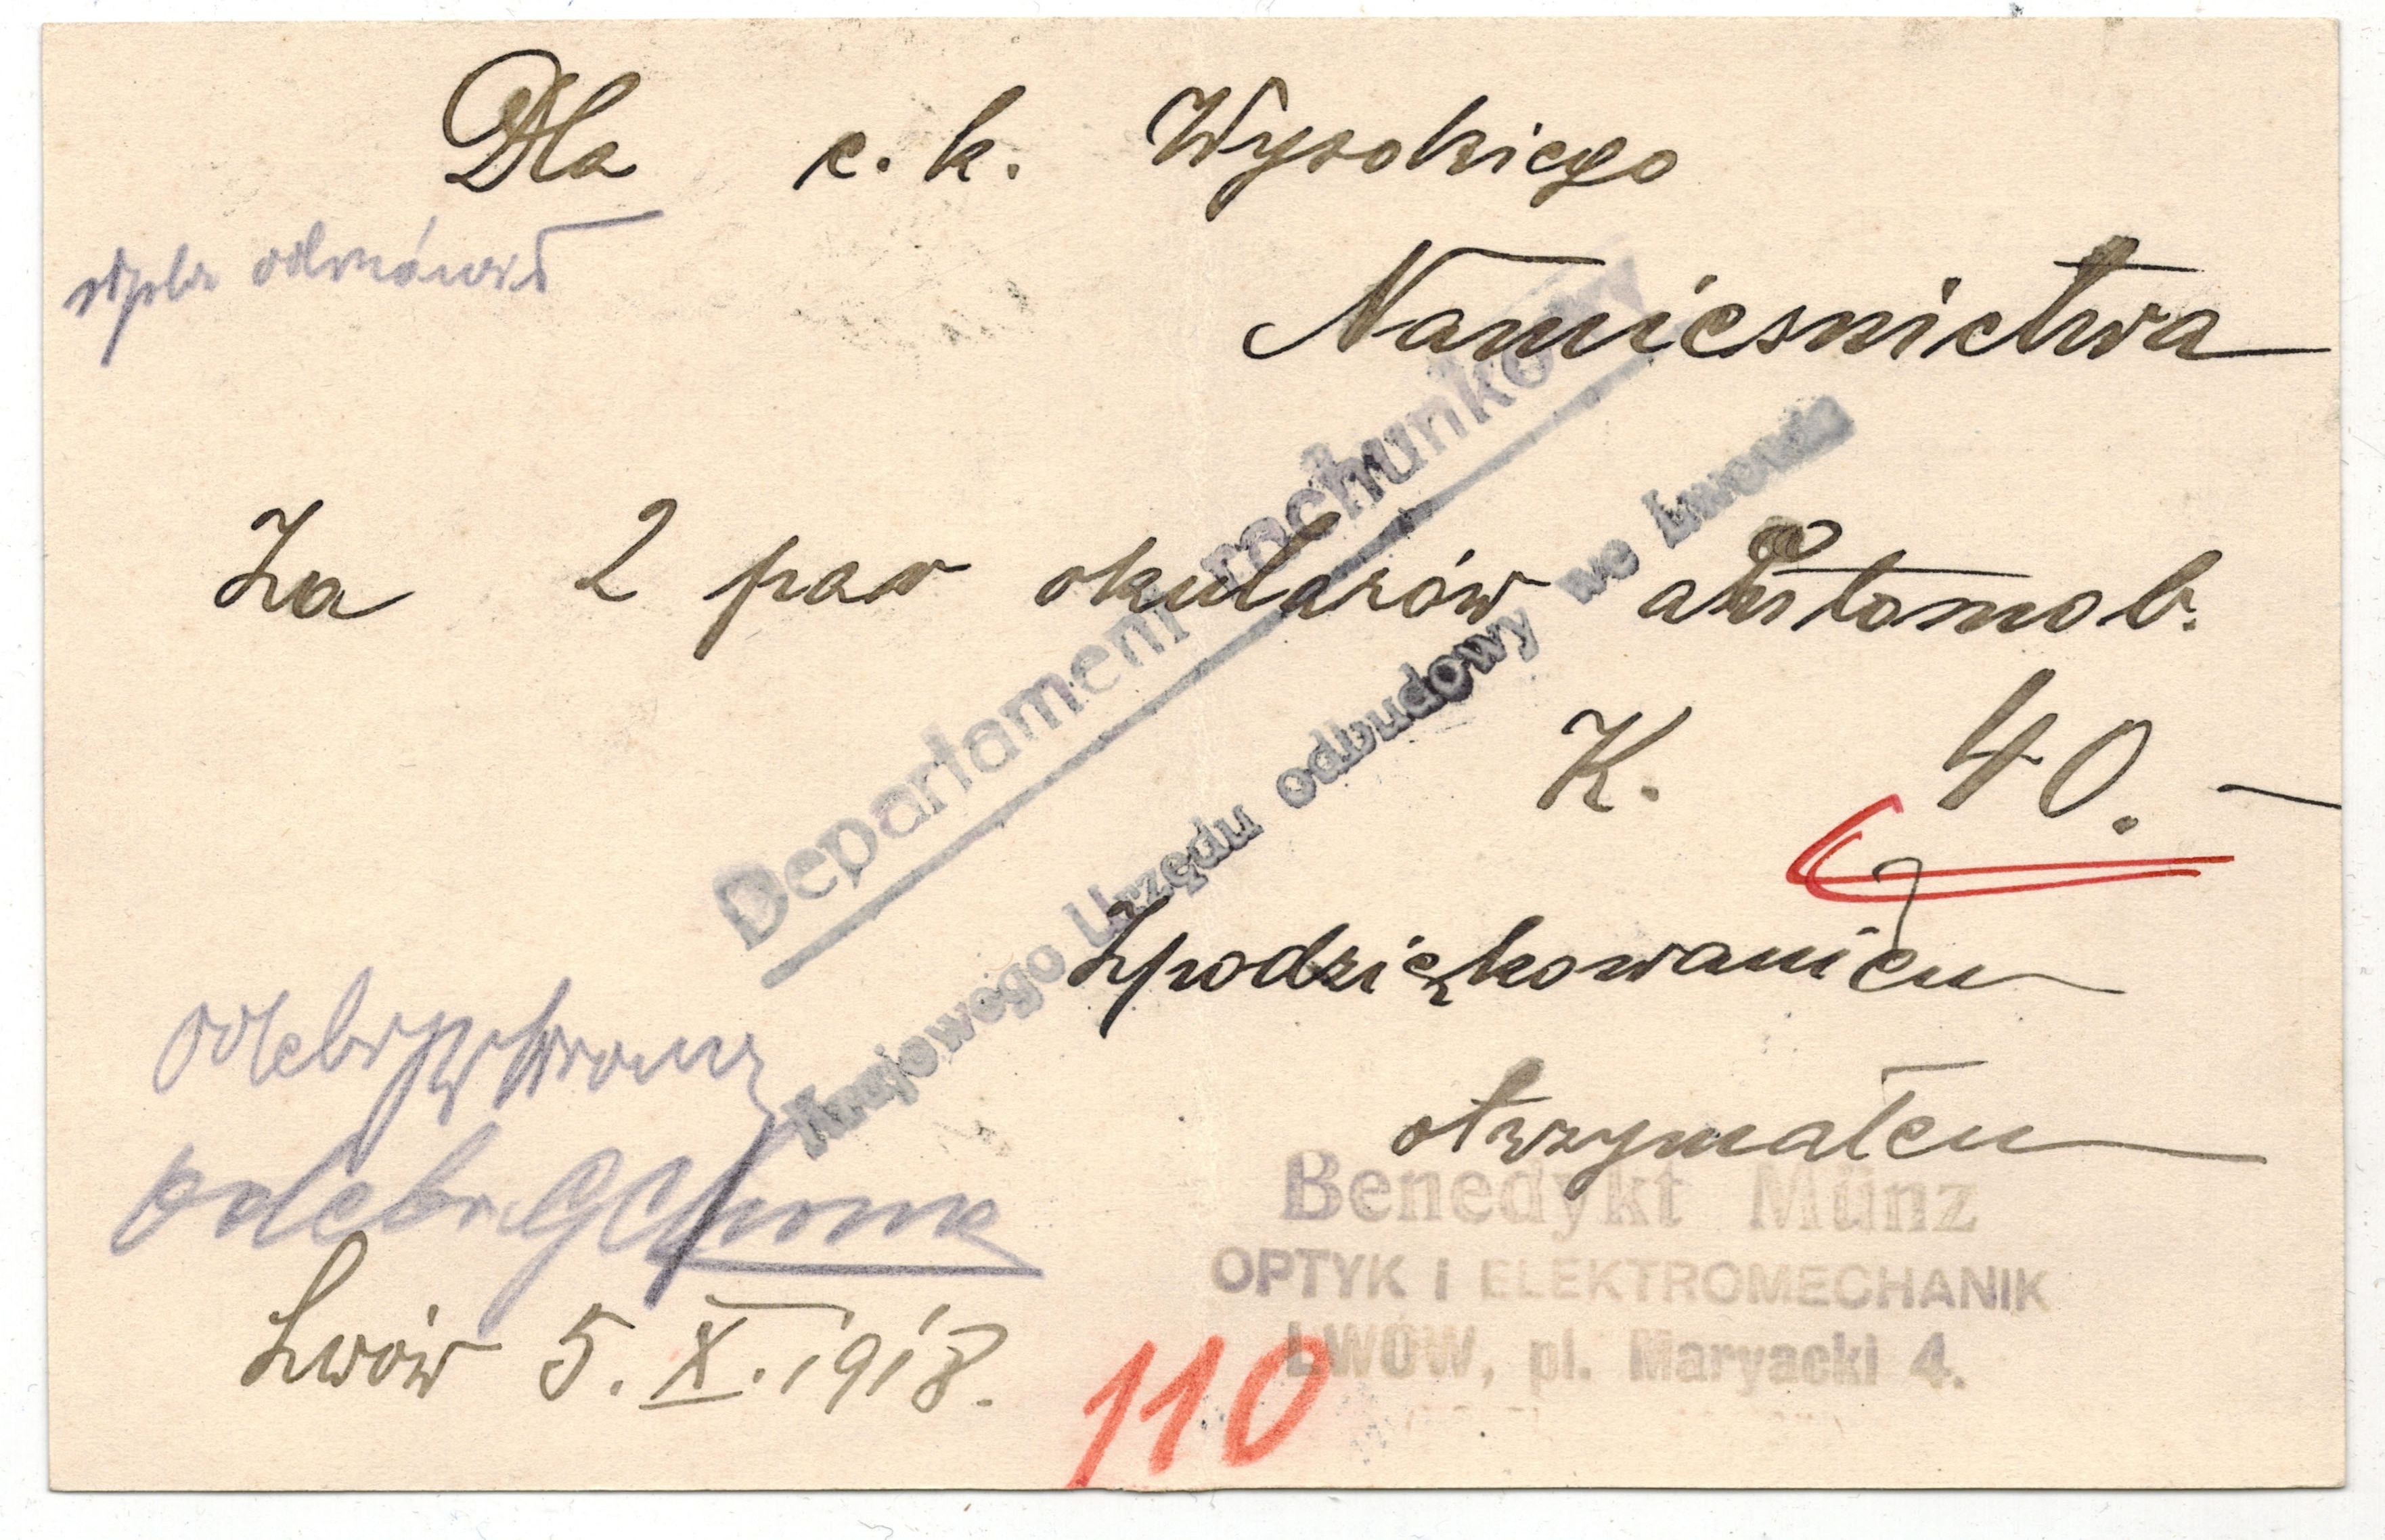 Dla c. k. Wysokiego
Namiesnictwa
Za 2 par okularów automob.
K. 40.—
Z podziękowaniem
otrzymałem
Departament rachunkowy
Krajowego Urzędu odbudowy we Lwowie
Benedykt Münz
OPTYK i ELEKTROMECHANIK
LWÓW, pl. Maryacki 4.
Lwów 5. X. 1918.
110